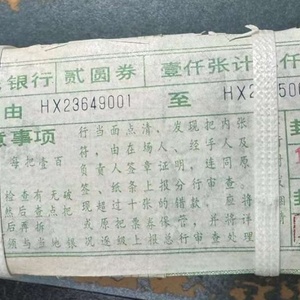 银行 贰圆券 壹仟张计 仟
由 HX23649001 至 HX2 500
意事项
每把壹百
检查有无破
然后查点把
后再拆
须与当地银
行当面点清、发现把内张
符，由在场人、经手人及
负责人签章证明，连同原
签、纸条上报分行审查。
现超过十张的错款，应将
或原把票券保管，并将详
况逐级上报总行审查处理
封
封